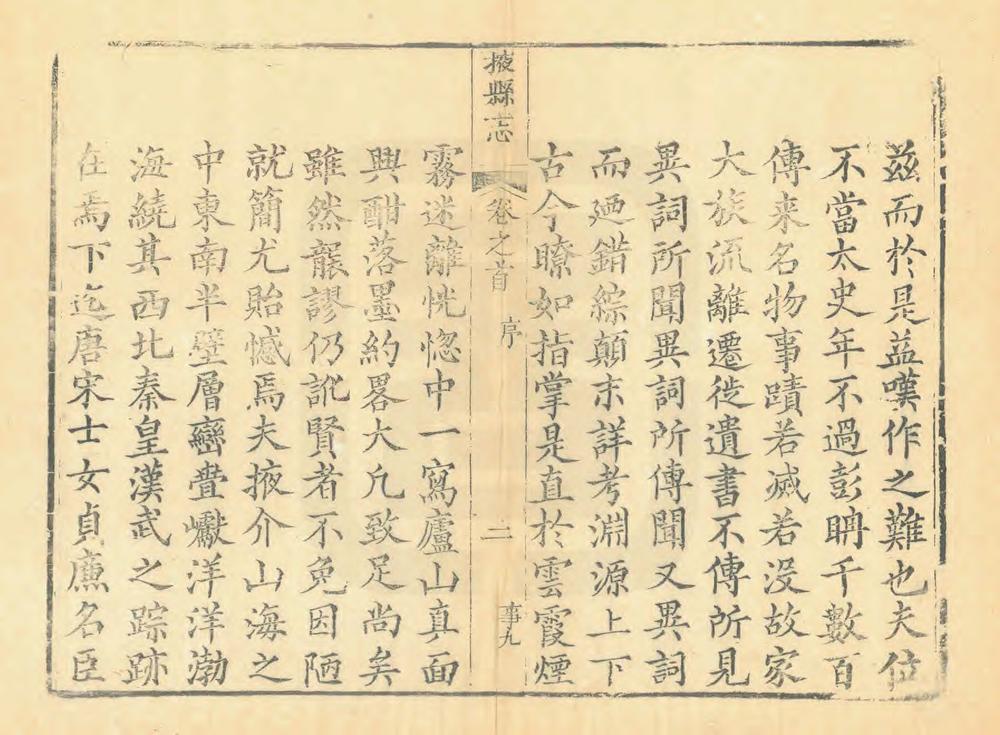 茲而於是益嘆作之難也夫位
不當太史年不過彭聃千數百
傳来名物事蹟若滅若没故家
大族流離遷徙遺書不傳所見
異詞所聞異詞所傳聞又異詞
而廼錯綜顛末詳考淵源上下
古今瞭如指掌是直於雲霞煙
掖縣志
卷之首
序
二
事九
霧迷離恍惚中一寫廬山真面
興酣落墨約畧大凢致足尚矣
雖然龎謬仍訛賢者不免因陋
就簡尤貽憾焉夫掖介山海之
中東南半壁層巒疊巘洋洋渤
海繞其西北秦皇漢武之踪跡
在焉下迄唐宋士女貞廉名臣